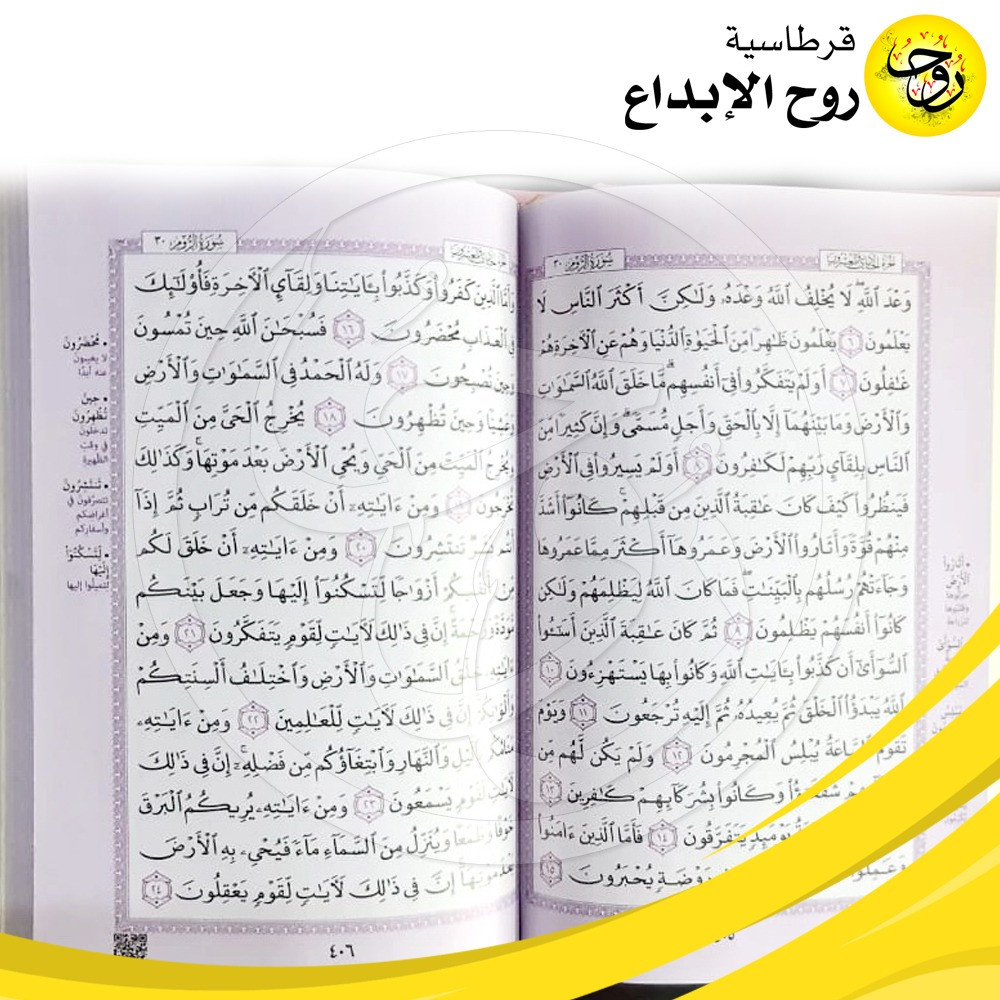 قرطاسية
روح الإبداع
روح
سورة الروم ٣٠
وَعْدَ ٱللَّهِ لَا يُخْلِفُ ٱللَّهُ وَعْدَهُۥ وَلَٰكِنَّ أَكْثَرَ ٱلنَّاسِ لَا
يَعْلَمُونَ ٦ يَعْلَمُونَ ظَٰهِرًا مِّنَ ٱلْحَيَوٰةِ ٱلدُّنْيَا وَهُمْ عَنِ ٱلْءَاخِرَةِ هُمْ
غَٰفِلُونَ ٧ أَوَلَمْ يَتَفَكَّرُوا۟ فِىٓ أَنفُسِهِم مَّا خَلَقَ ٱللَّهُ ٱلسَّمَٰوَٰتِ
وَٱلْأَرْضَ وَمَا بَيْنَهُمَآ إِلَّا بِٱلْحَقِّ وَأَجَلٍ مُّسَمًّى وَإِنَّ كَثِيرًا مِّنَ
ٱلنَّاسِ بِلِقَآئِ رَبِّهِمْ لَكَٰفِرُونَ ٨ أَوَلَمْ يَسِيرُوا۟ فِى ٱلْأَرْضِ
فَيَنظُرُوا۟ كَيْفَ كَانَ عَٰقِبَةُ ٱلَّذِينَ مِن قَبْلِهِمْ كَانُوٓا۟ أَشَدَّ
مِنْهُمْ قُوَّةً وَأَثَارُوا۟ ٱلْأَرْضَ وَعَمَرُوهَآ أَكْثَرَ مِمَّا عَمَرُوهَا
وَجَآءَتْهُمْ رُسُلُهُم بِٱلْبَيِّنَٰتِ فَمَا كَانَ ٱللَّهُ لِيَظْلِمَهُمْ وَلَٰكِن
كَانُوٓا۟ أَنفُسَهُمْ يَظْلِمُونَ ٩ ثُمَّ كَانَ عَٰقِبَةَ ٱلَّذِينَ أَسَٰٓـُٔوا۟
ٱلسُّوٓأَىٰٓ أَن كَذَّبُوا۟ بِـَٔايَٰتِ ٱللَّهِ وَكَانُوا۟ بِهَا يَسْتَهْزِءُونَ ١٠
ٱللَّهُ يَبْدَؤُا۟ ٱلْخَلْقَ ثُمَّ يُعِيدُهُۥ ثُمَّ إِلَيْهِ تُرْجَعُونَ ١١ وَيَوْمَ
تَقُومُ ٱلسَّاعَةُ يُبْلِسُ ٱلْمُجْرِمُونَ ١٢ وَلَمْ يَكُن لَّهُم مِّن
شُفَعَٰٓؤُا۟ وَكَانُوا۟ بِشُرَكَآئِهِمْ كَٰفِرِينَ ١٣
يَوْمَئِذٍ يَتَفَرَّقُونَ ١٤ فَأَمَّا ٱلَّذِينَ ءَامَنُوا۟
رَوْضَةٍ يُحْبَرُونَ ١٥
أثاروا
الأرض
سورة الروم ٣٠
وَأَمَّا ٱلَّذِينَ كَفَرُوا۟ وَكَذَّبُوا۟ بِـَٔايَٰتِنَا وَلِقَآئِ ٱلْءَاخِرَةِ فَأُو۟لَٰٓئِكَ
فِى ٱلْعَذَابِ مُحْضَرُونَ ١٦ فَسُبْحَٰنَ ٱللَّهِ حِينَ تُمْسُونَ
وَحِينَ تُصْبِحُونَ ١٧ وَلَهُ ٱلْحَمْدُ فِى ٱلسَّمَٰوَٰتِ وَٱلْأَرْضِ
وَعَشِيًّا وَحِينَ تُظْهِرُونَ ١٨ يُخْرِجُ ٱلْحَىَّ مِنَ ٱلْمَيِّتِ
وَيُخْرِجُ ٱلْمَيِّتَ مِنَ ٱلْحَىِّ وَيُحْىِ ٱلْأَرْضَ بَعْدَ مَوْتِهَا وَكَذَٰلِكَ
تُخْرَجُونَ ١٩ وَمِنْ ءَايَٰتِهِۦٓ أَنْ خَلَقَكُم مِّن تُرَابٍ ثُمَّ إِذَآ
أَنتُم بَشَرٌ تَنتَشِرُونَ ٢٠ وَمِنْ ءَايَٰتِهِۦٓ أَنْ خَلَقَ لَكُم
مِّنْ أَنفُسِكُمْ أَزْوَٰجًا لِّتَسْكُنُوٓا۟ إِلَيْهَا وَجَعَلَ بَيْنَكُم
مَّوَدَّةً وَرَحْمَةً إِنَّ فِى ذَٰلِكَ لَءَايَٰتٍ لِّقَوْمٍ يَتَفَكَّرُونَ ٢١ وَمِنْ
ءَايَٰتِهِۦ خَلْقُ ٱلسَّمَٰوَٰتِ وَٱلْأَرْضِ وَٱخْتِلَٰفُ أَلْسِنَتِكُمْ
وَأَلْوَٰنِكُمْ إِنَّ فِى ذَٰلِكَ لَءَايَٰتٍ لِّلْعَٰلِمِينَ ٢٢ وَمِنْ ءَايَٰتِهِۦ
مَنَامُكُم بِٱلَّيْلِ وَٱلنَّهَارِ وَٱبْتِغَآؤُكُم مِّن فَضْلِهِۦٓ إِنَّ فِى ذَٰلِكَ
لَءَايَٰتٍ لِّقَوْمٍ يَسْمَعُونَ ٢٣ وَمِنْ ءَايَٰتِهِۦ يُرِيكُمُ ٱلْبَرْقَ
خَوْفًا وَطَمَعًا وَيُنَزِّلُ مِنَ ٱلسَّمَآءِ مَآءً فَيُحْىِۦ بِهِ ٱلْأَرْضَ
بَعْدَ مَوْتِهَآ إِنَّ فِى ذَٰلِكَ لَءَايَٰتٍ لِّقَوْمٍ يَعْقِلُونَ ٢٤
• مُحْضَرُونَ
لا يغيبون
عنه أبدًا
• حِينَ
تُظْهِرُونَ
تدخلون
في وقتِ
الظهيرة
• تَنتَشِرُونَ
تتصرفون في
أغراضكم
وأسفاركم
• لِتَسْكُنُوٓا۟
إِلَيْهَا
لتميلوا إليها
٤٠٦